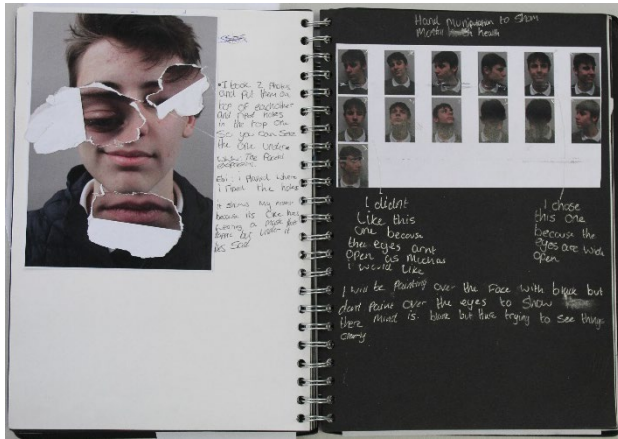 I took 2 photos
and put them on
top of eachother
and riped holes
in the top one
so you can see
the one under
WWW: The facial
expressions.
Ebi: i Placed where
i riped the holes
it shows my
because its like hes
putting a
is Sad
Hand Munipulation to Show
Mental health
I didnt
Like this
one because
the eyes arnt
open as Muchas
i would like
I chose
this one
because the
eyes are wide
open.
I will be painting over the Face with black but
dont Paint over the eyes to Show
there Mind is blank but there trying to see things
clearly